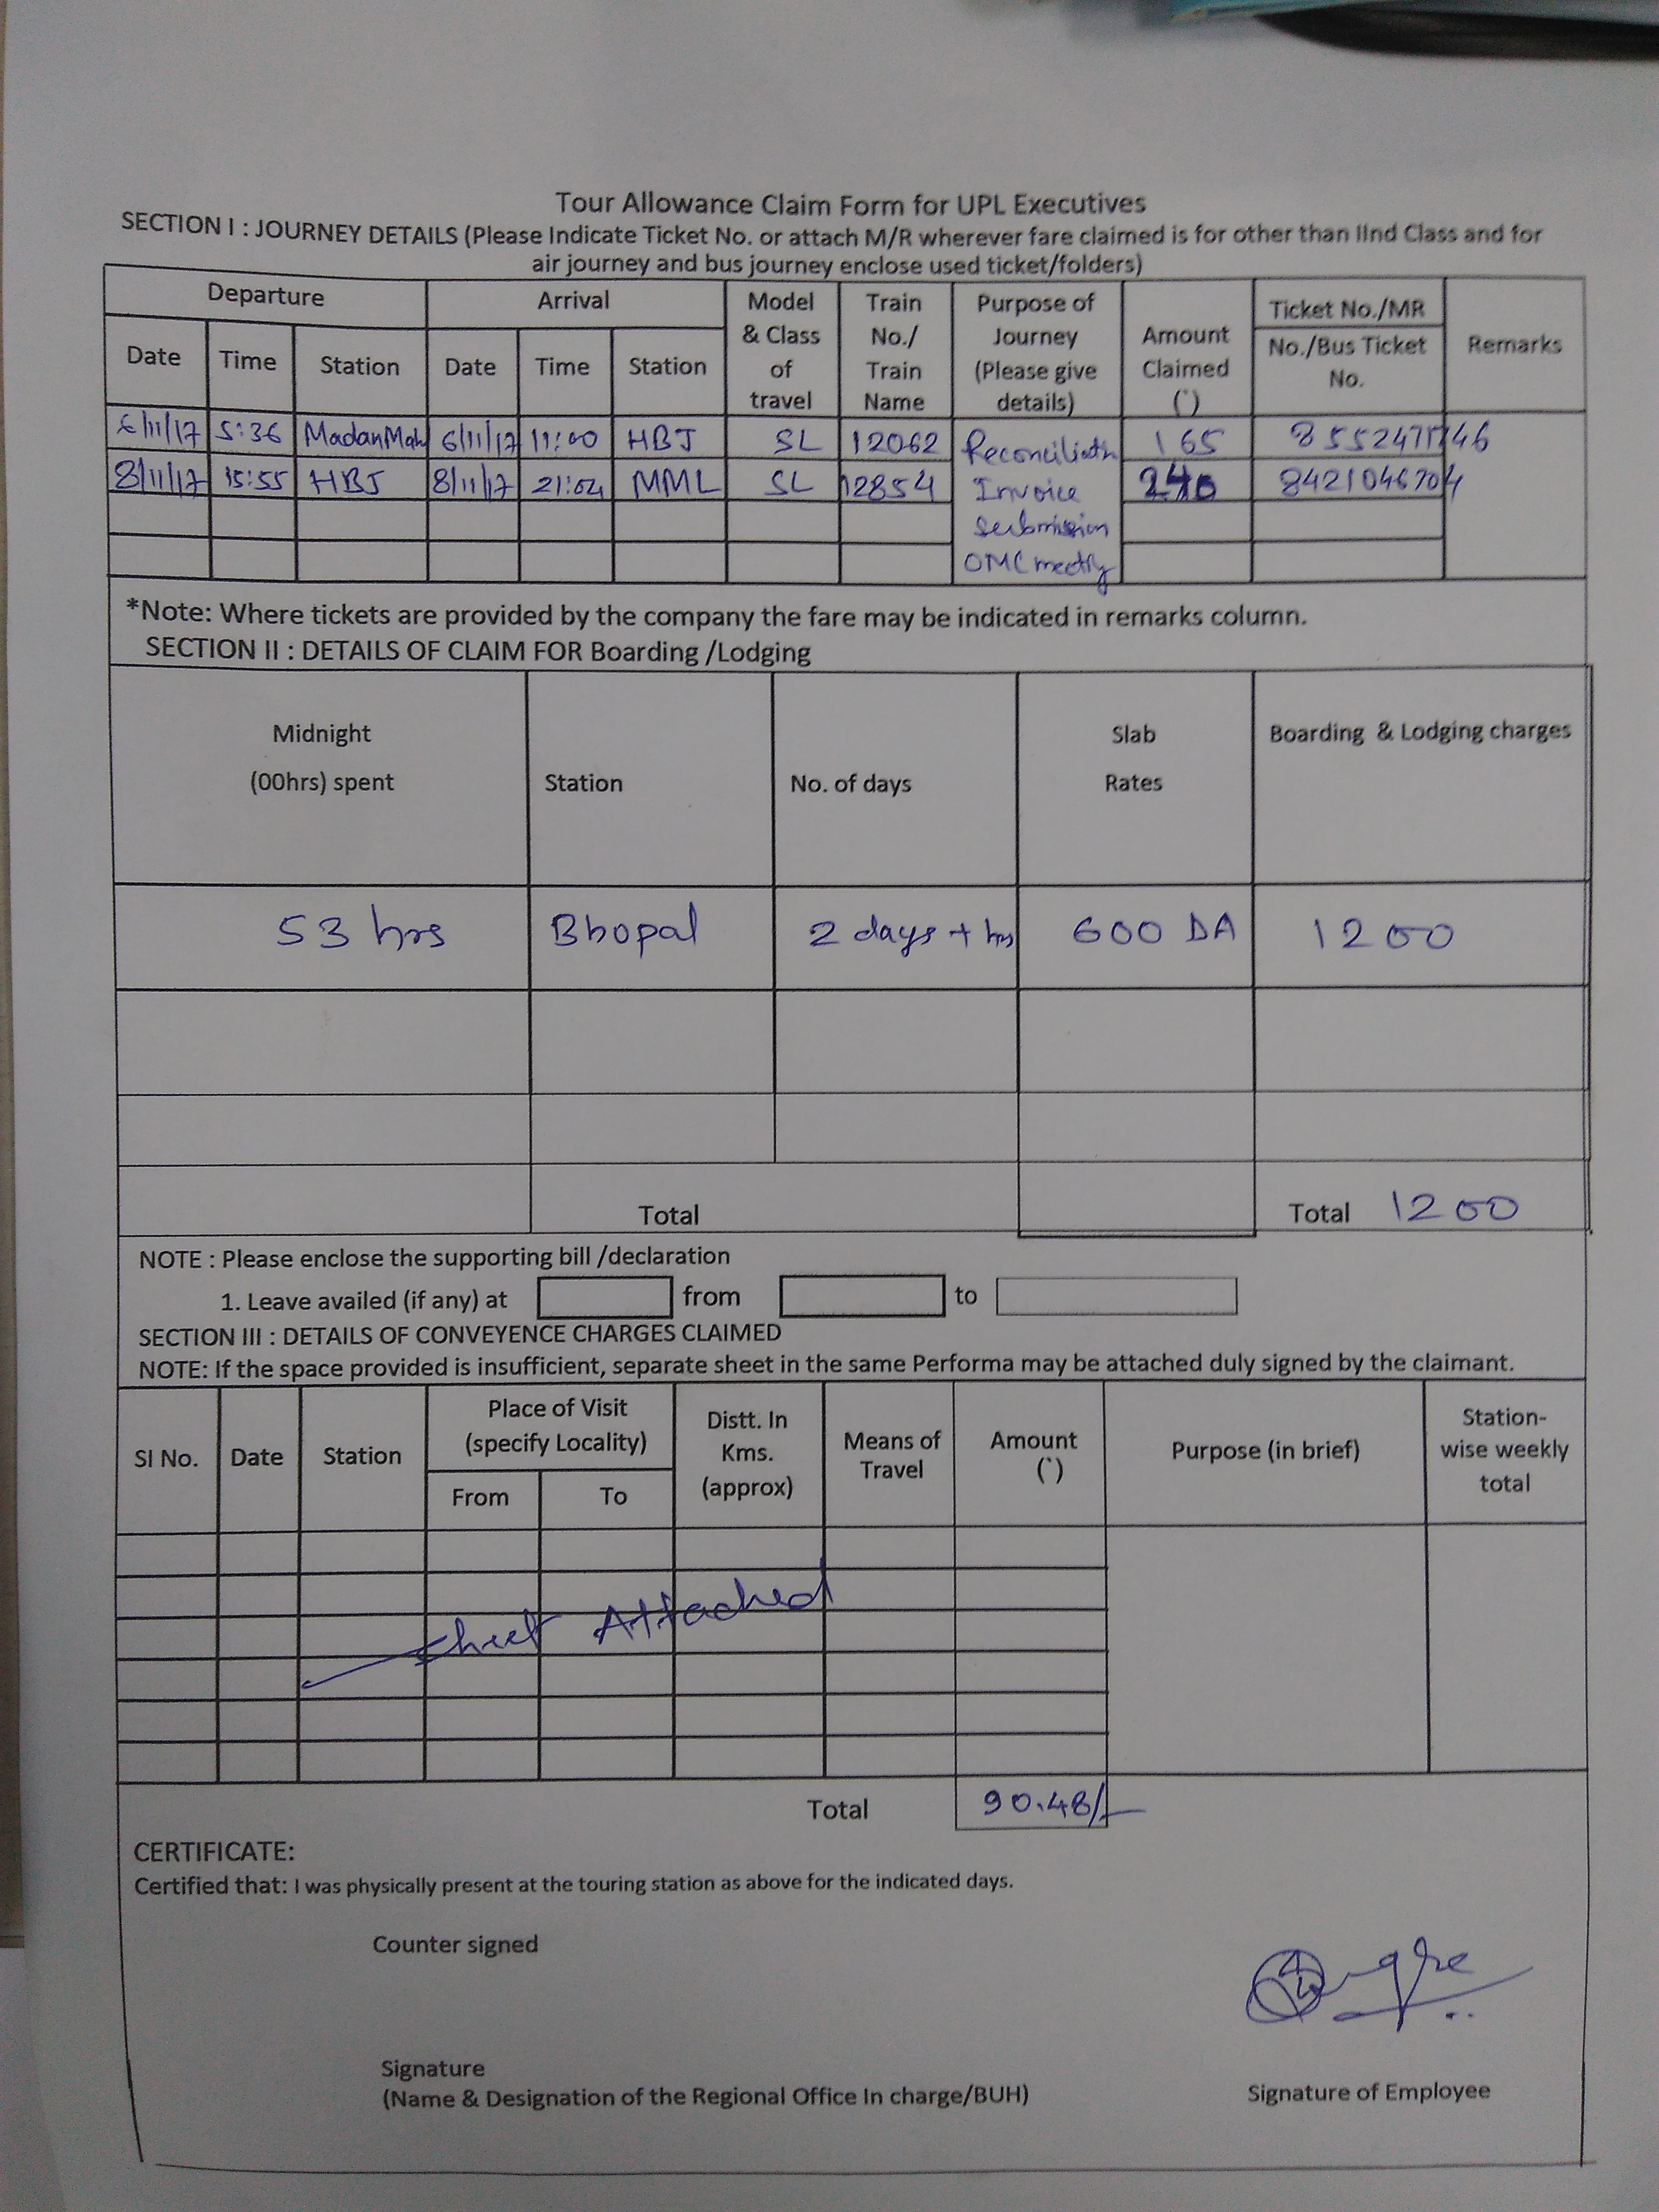 Tour Allowance Claim Form for UPL Executives
SECTION I : JOURNEY DETAILS (Please Indicate Ticket No. or attach M/R wherever fare claimed is for other than IInd Class and for
air journey and bus journey enclose used ticket/folders)
Departure Arrival Model & Class of travel Train No./ Train Name Purpose of Journey (Please give details) Amount Claimed (`) Ticket No./MR No./Bus Ticket No. Remarks
Date Time Station Date Time Station
6/11/17 5:36 MadanMah 6/11/17 11:00 HBJ SL 12062 Reconciliatn 165 8552471746
8/11/17 15:55 HBJ 8/11/17 21:04 MML SL 12854 Invoice 240 8421046704
Submission
OMC meetig
*Note: Where tickets are provided by the company the fare may be indicated in remarks column.
SECTION II : DETAILS OF CLAIM FOR Boarding /Lodging
Midnight (00hrs) spent Station No. of days Slab Rates Boarding & Lodging charges
53 hrs Bhopal 2 days + hrs 600 DA 1200
Total Total 1200
NOTE : Please enclose the supporting bill /declaration
1. Leave availed (if any) at from to
SECTION III : DETAILS OF CONVEYENCE CHARGES CLAIMED
NOTE: If the space provided is insufficient, separate sheet in the same Performa may be attached duly signed by the claimant.
SI No. Date Station Place of Visit (specify Locality) Distt. In Kms. (approx) Means of Travel Amount (`) Purpose (in brief) Station-wise weekly total
From To
Sheet Attached
Total 90.48/-
CERTIFICATE:
Certified that: I was physically present at the touring station as above for the indicated days.
Counter signed
Signature
(Name & Designation of the Regional Office In charge/BUH) Signature of Employee